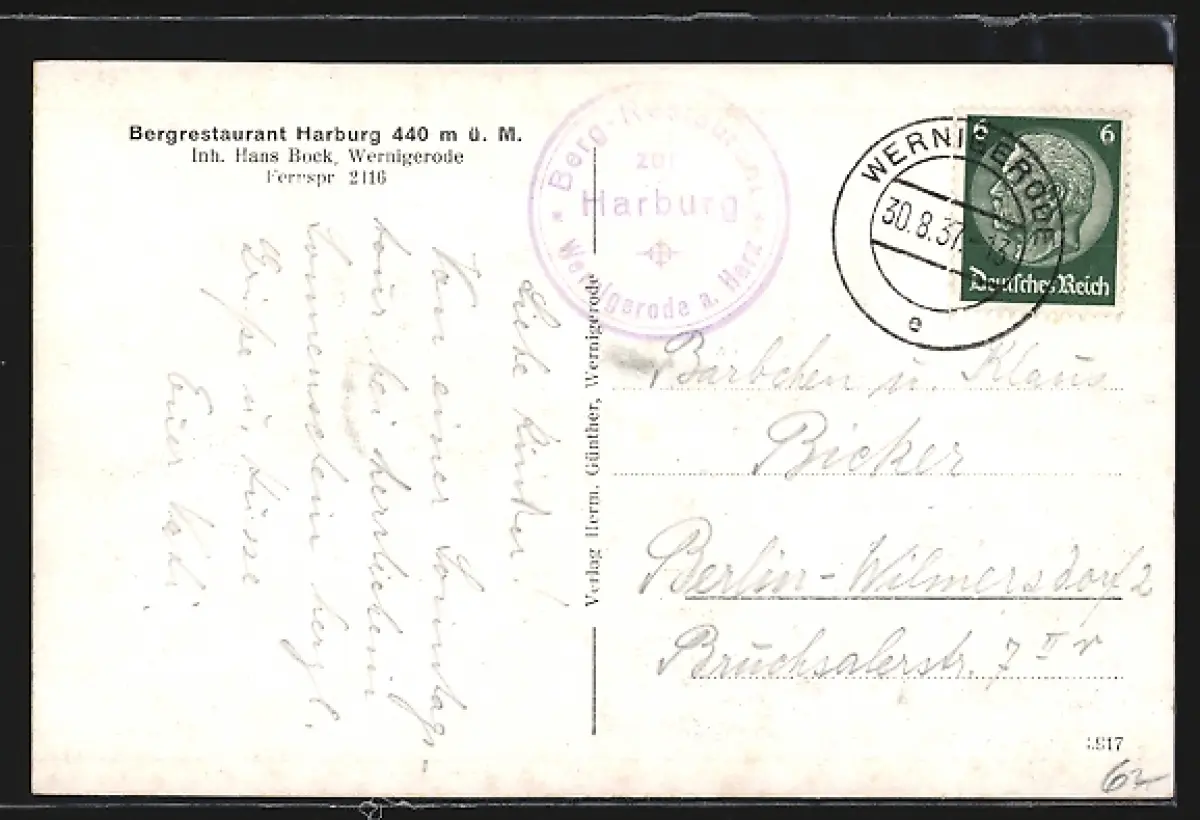 Bergrestaurant Harburg 440 m ü. M.
Inh. Hans Bock, Wernigerode
Fernspr. 2116
Berg-Restaurant
zur
Harburg
Wernigerode a. Harz
WERNIGERODE
30.8.37
e
6 6
Deutsches Reich
Liebe Kinder!
Von einer Sonntags-
tour bei herrlichem
Sonnenschein herzl.
Grüße u. Küsse
Euer
Verlag Herm. Günther, Wernigerode
Bärbchen u. Klaus
Bicker
Berlin-Wilmersdorf 2
Bruchsalerstr. 7 II r
62